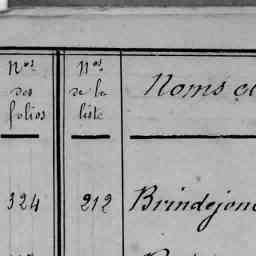 Nos
des
folios
Nos
de la
liste
Noms
324
212
Brindejonc